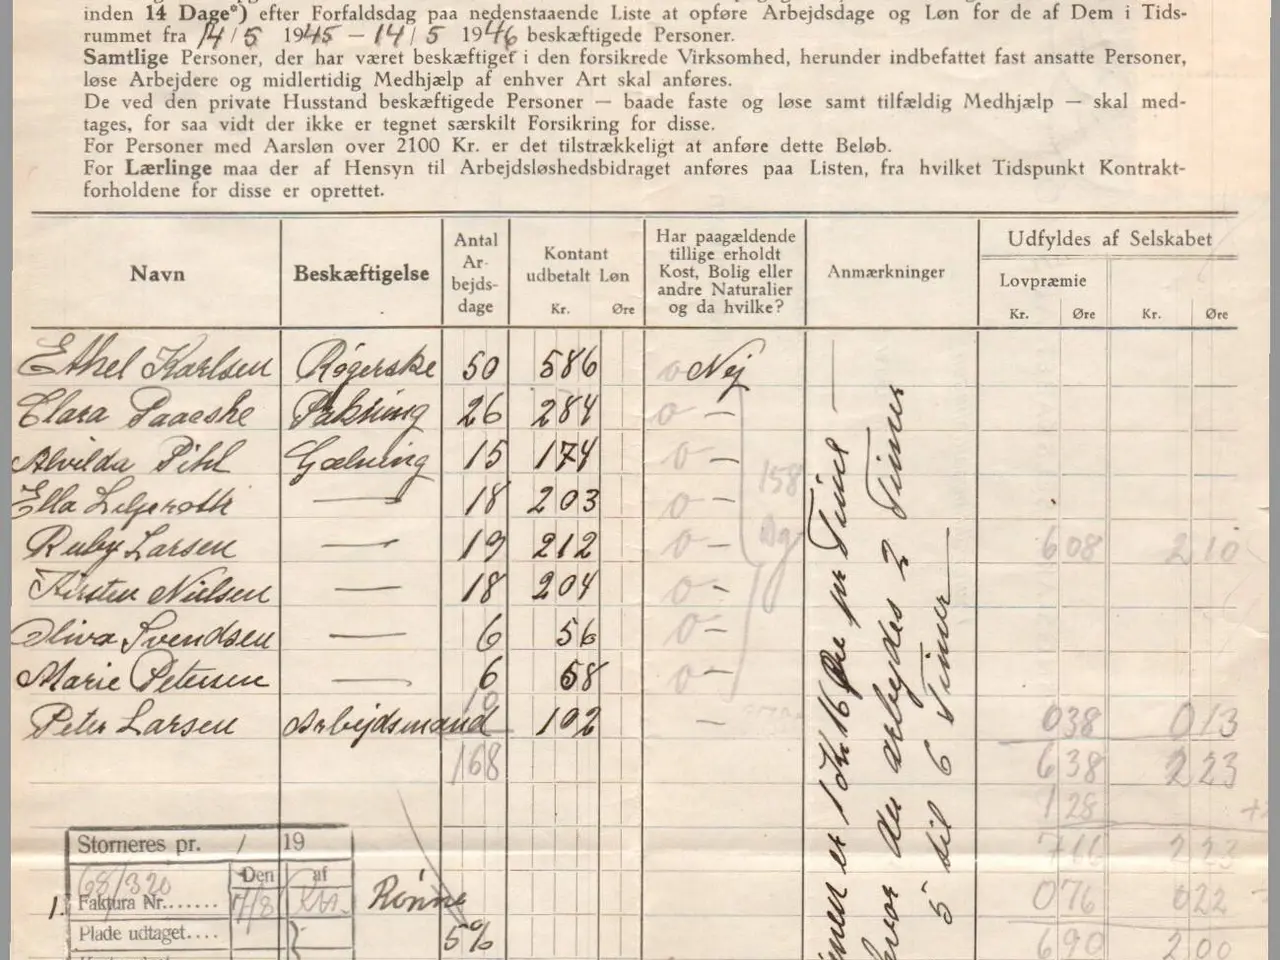 inden 14 Dage*) efter Forfaldsdag paa nedenstaaende Liste at opføre Arbejdsdage og Løn for de af Dem i Tids-
rummet fra 14/5 1945 – 14/5 1946 beskæftigede Personer.
Samtlige Personer, der har været beskæftiget i den forsikrede Virksomhed, herunder indbefattet fast ansatte Personer,
løse Arbejdere og midlertidig Medhjælp af enhver Art skal anføres.
De ved den private Husstand beskæftigede Personer — baade faste og løse samt tilfældig Medhjælp — skal med-
tages, for saa vidt der ikke er tegnet særskilt Forsikring for disse.
For Personer med Aarsløn over 2100 Kr. er det tilstrækkeligt at anføre dette Beløb.
For Lærlinge maa der af Hensyn til Arbejdsløshedsbidraget anføres paa Listen, fra hvilket Tidspunkt Kontrakt-
forholdene for disse er oprettet.
Navn
Beskæftigelse
Antal
Ar-
bejds-
dage
Kontant
udbetalt Løn
Kr. Øre
Har paagældende
tillige erholdt
Kost, Bolig eller
andre Naturalier
og da hvilke?
Anmærkninger
Udfyldes af Selskabet
Lovpræmie
Kr. Øre Kr. Øre
Ethel Karlsen Røgerske 50 586 o Nej
Clara Paaeske Pakning 26 284 o —
Alvilda Pihl Gælning 15 174 o —
Ella Liljeroth — 18 203 o —
Ruby Larsen — 19 212 o — 6 08 2 10
Kirsten Nielsen — 18 204 o —
Oliva Svendsen — 6 56 o —
Marie Petersen — 6 58 o —
Peter Larsen Arbejdsmand 10 102 — 0 38 0 13
158
Dg
168 6 38 2 23
1 28
7 66 2 23
0 76 0 22
6 90 2 00
er 1 Kr 16 Øre pr Time —
hvor der arbejdes 2 Timer
5 til 6 Timer —
Storneres pr. / 19
68/320 Den af
1. Faktura Nr....... 7/8
Plade udtaget....
Rønne
5%